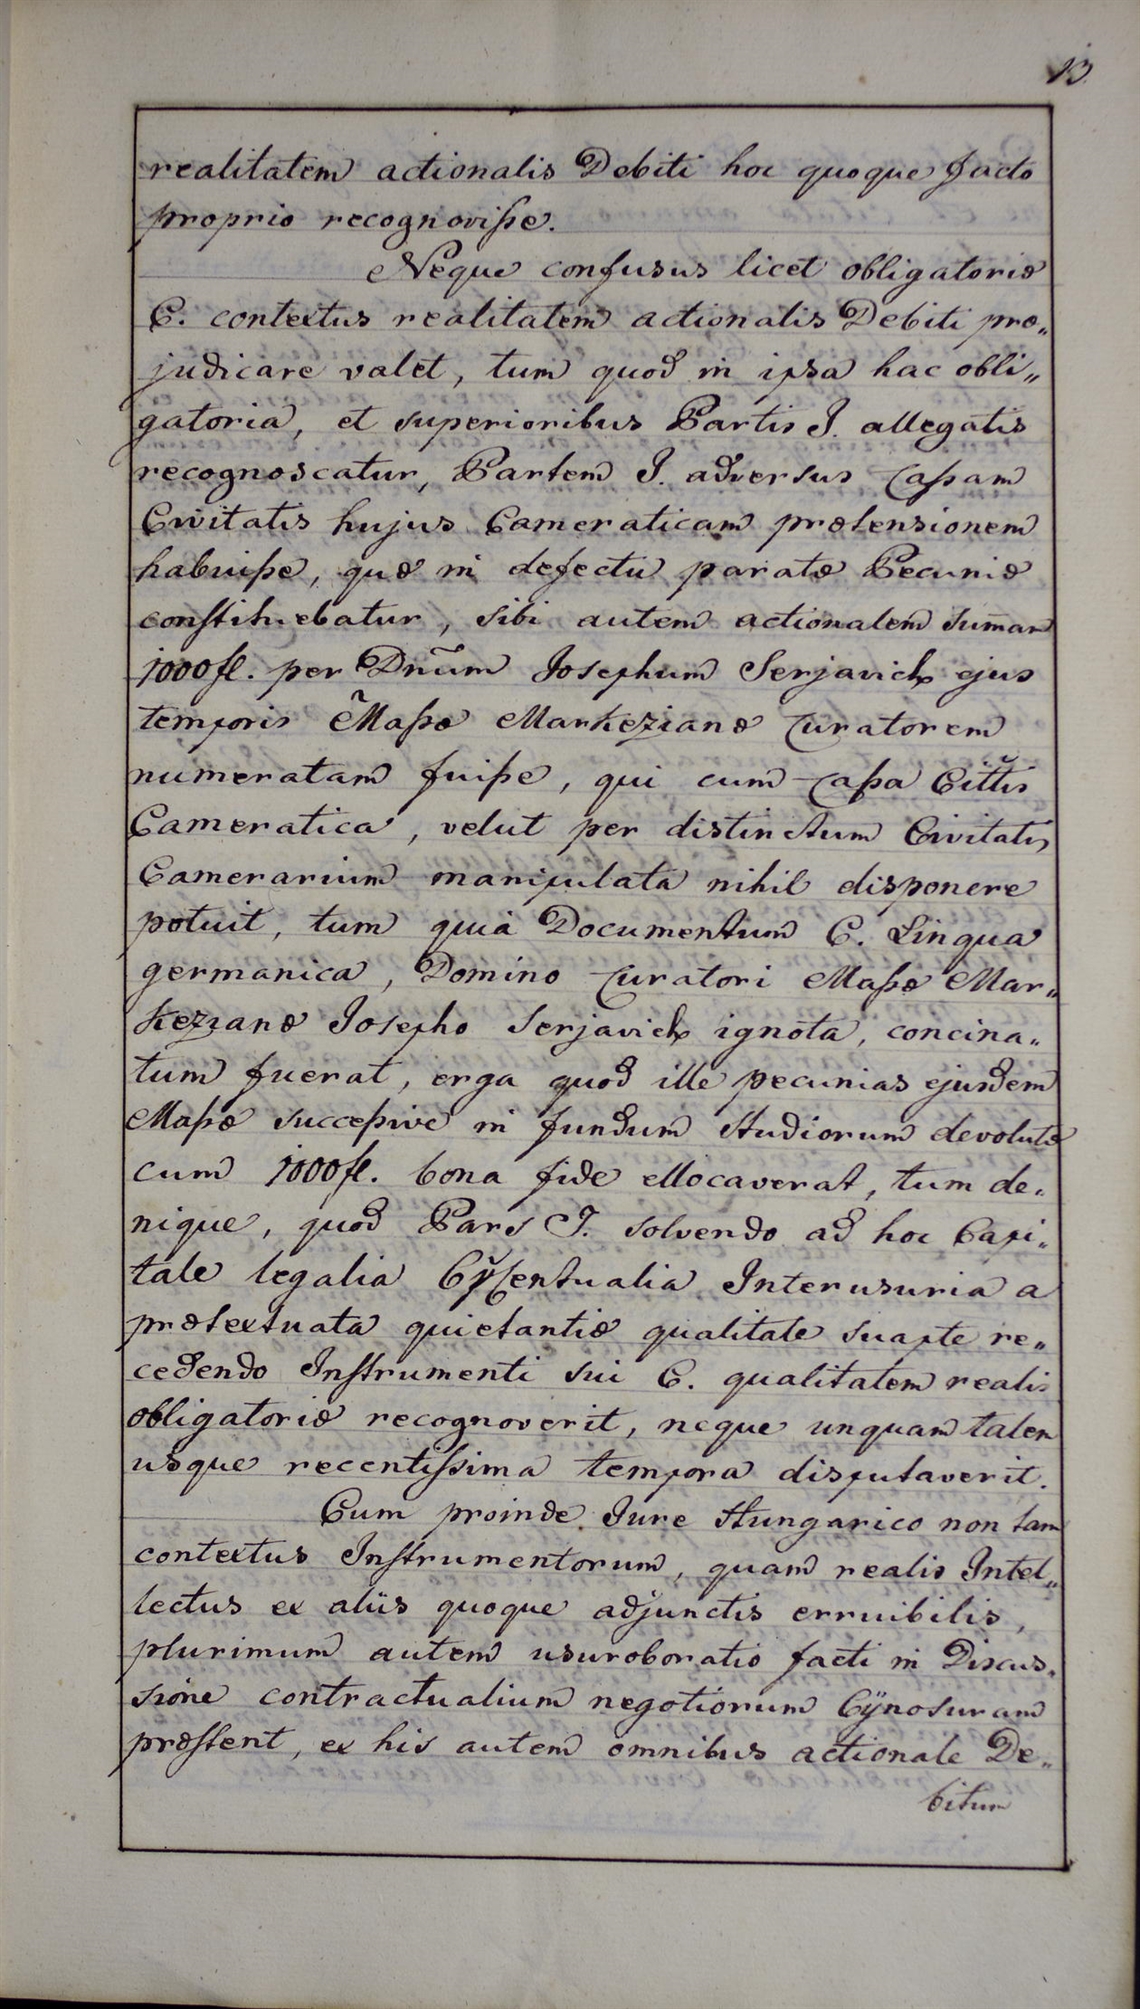 13
realitatem actionalis Debiti hoc quoque facto
proprio recognovisse.
Neque confusus licet obligatoriæ
C. contextus realitatem actionalis Debiti præ„
judicare valet, tum quod in ipsa hac obli„
gatoria, et superioribus Partis J. allegatis
recognoscatur, Partem J. adversus Cassam
Civitatis hujus Cameraticam prætensionem
habuisse, quæ in defectu paratæ Pecuniæ
constituebatur, sibi autem actionalem sum̄am
1000 fl. per Dnūm Josephum Serjavich ejus
temporis Massæ Markezianæ Curatorem
numeratam fuisse, qui cum Cassa Cittis
Cameratica, velut per distinctum Civitatis
Camerarium manipulata nihil disponere
potuit, tum quia Documentum C. Lingua
germanica, Domino Curatori Massæ Mar„
kezzanæ Josepho Serjavich ignota, concina„
tum fuerat, erga quod ille pecunias ejusdem
Massæ successive in fundum studiorum devolutæ
cum 1000 fl. bona fide ellocaverat, tum de„
nique, quod Pars J. solvendo ad hoc Capi„
tale legalia 6 pCentualia Interusuria a
prætextuata quietantiæ qualitate suapte re„
cedendo Instrumenti sui C. qualitatem realis
obligatoriæ recognoverit, neque unquam talem
usque recentissima tempora disputaverit.
Cum proinde Jure Hungarico non tam
contextus Instrumentorum, quam realis Intel„
lectus ex aliis quoque adjunctis erruibilis,
plurimum autem usuroboratio facti in Discus„
sione contractualium negotiorum Cÿnosuram
præstent, ex his autem omnibus actionale De„
bitum